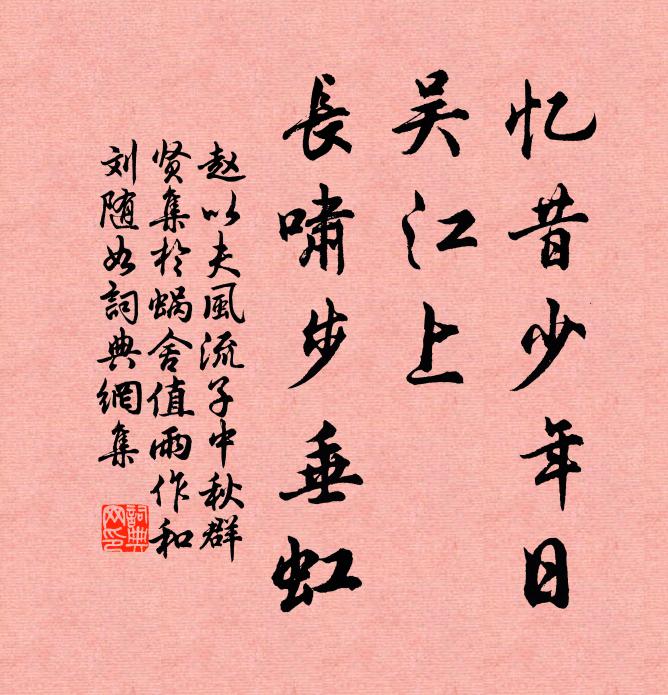 忆昔少年日
吴江上
長啸步垂虹
赵以夫風流子中秋群
贤集於蜗舍值雨作和
刘随如詞典網集
詞典网印